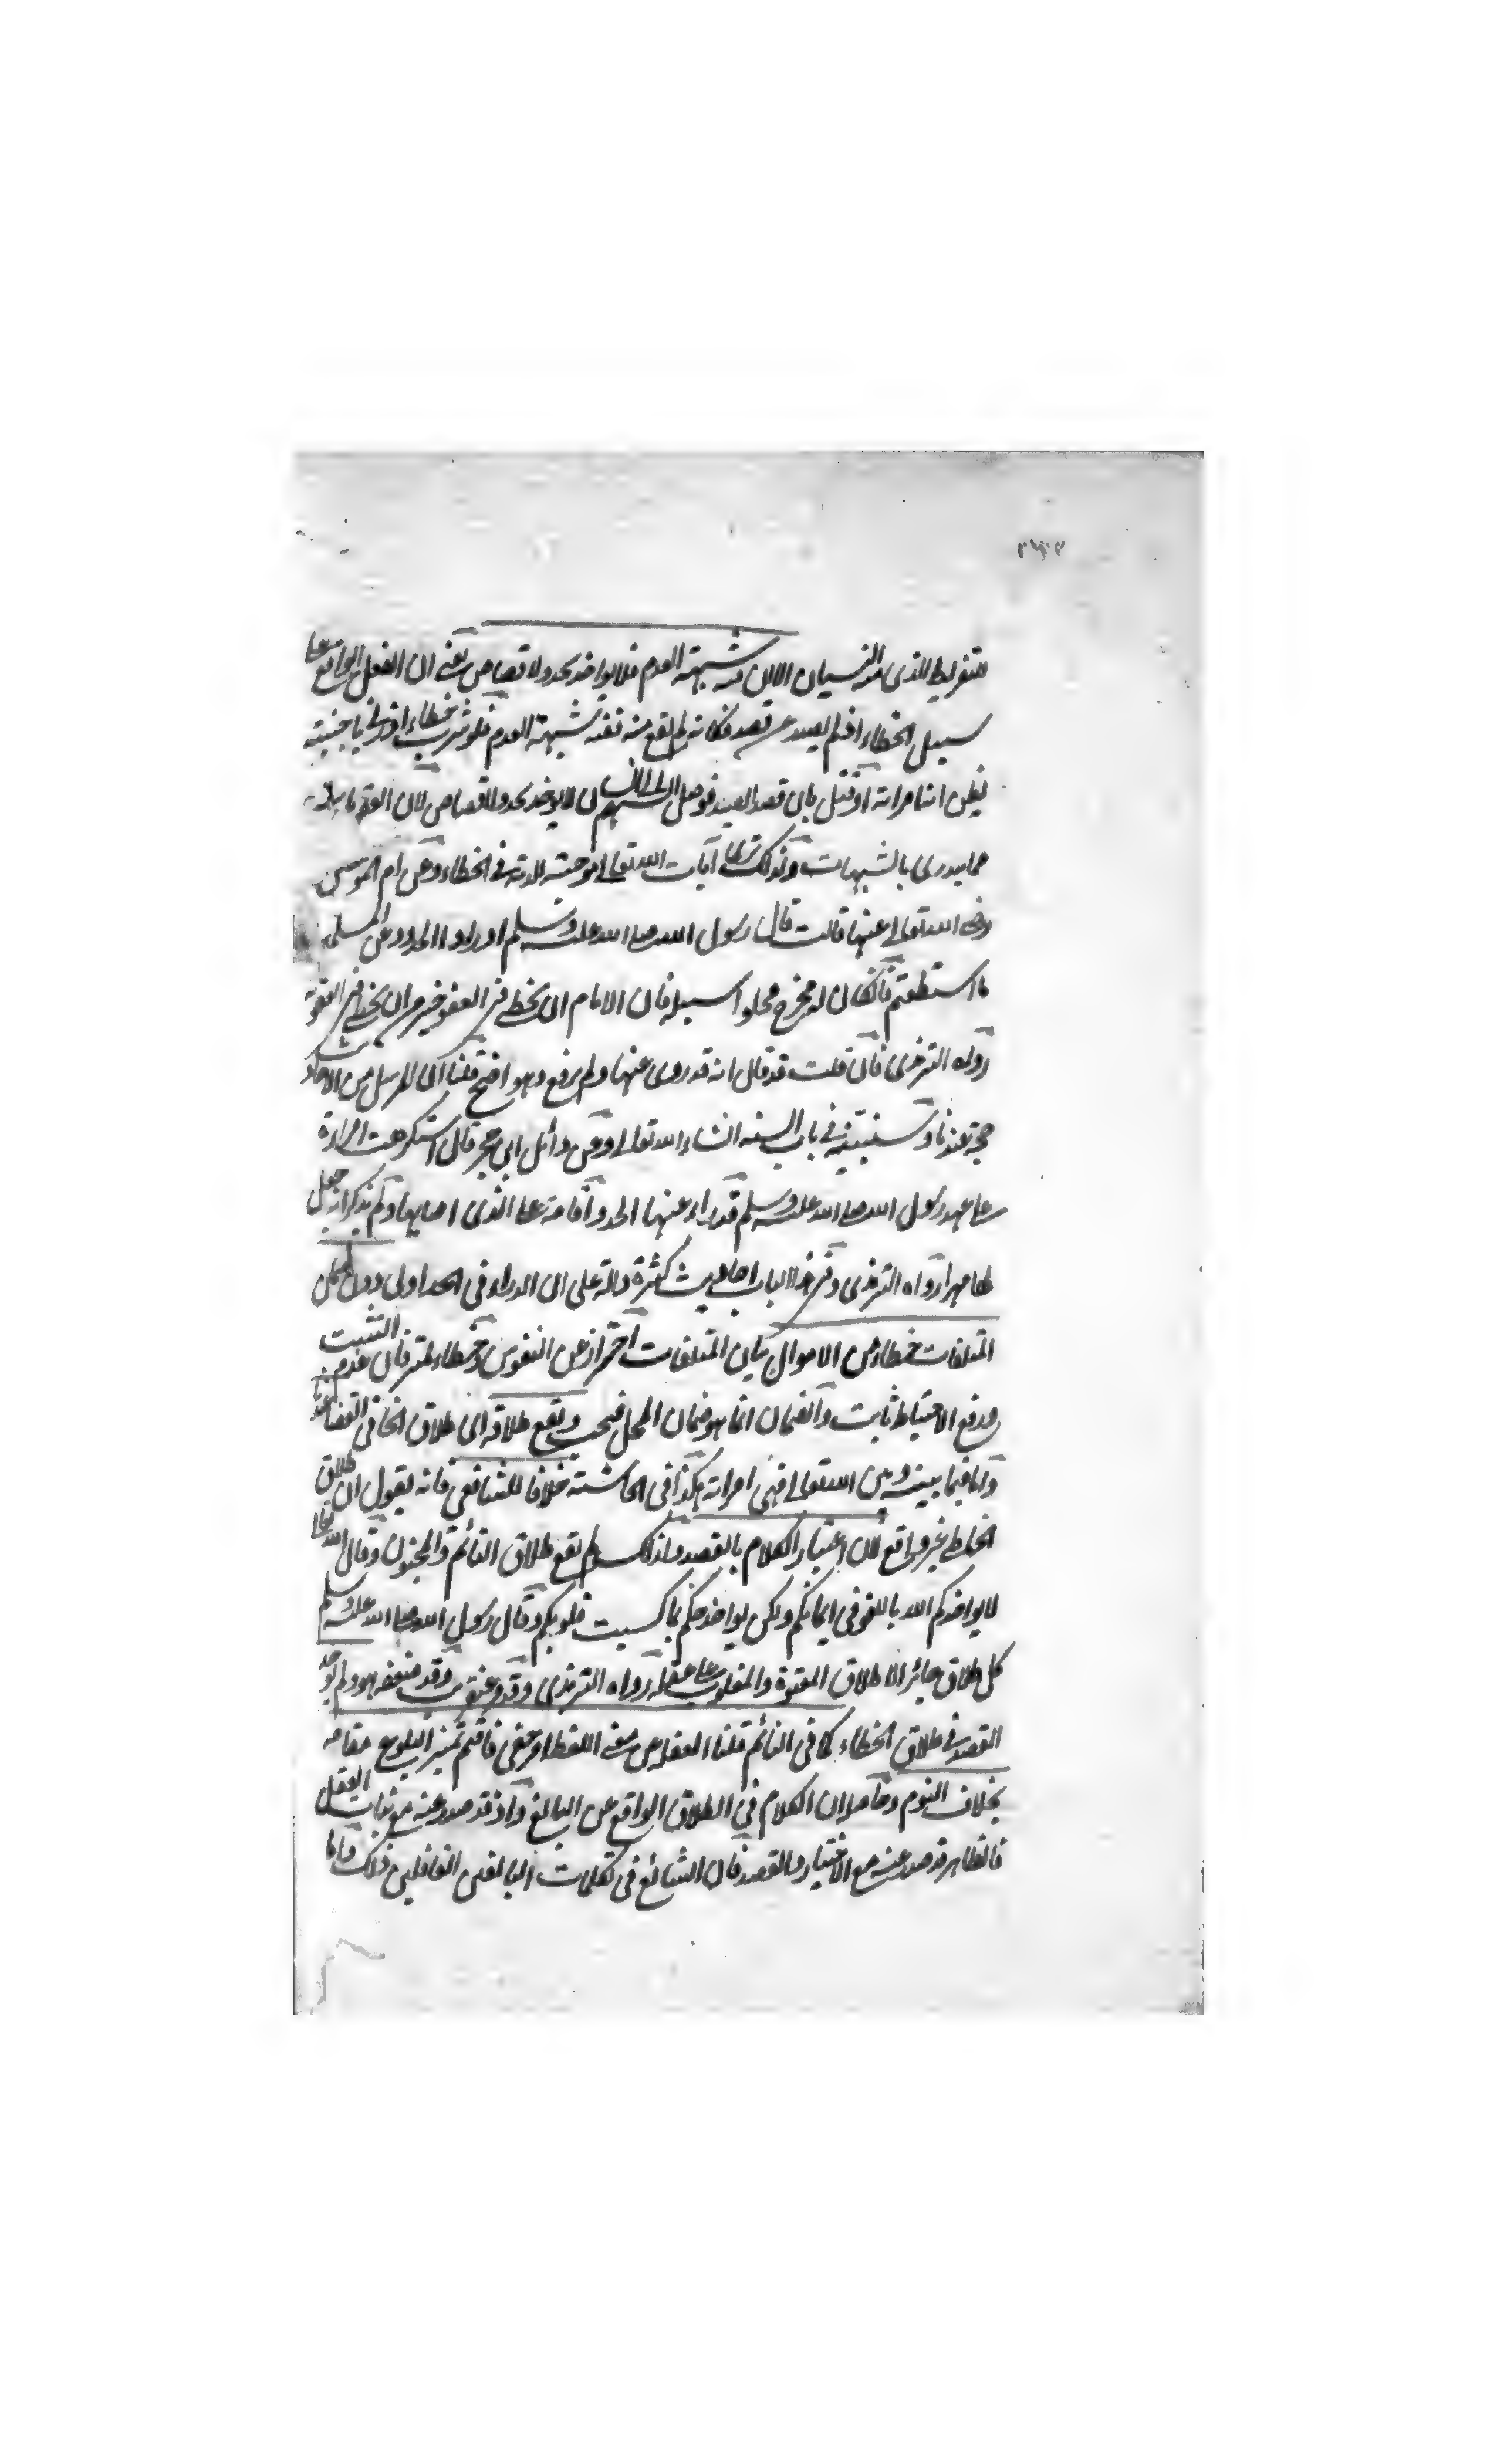 ٣٧٢
للتفريط الذى منه النسيان الا ان فيه شبهة العدم فلا يواخذ بحد ولا قصاص يعنى ان الفعل الواقع على
سبيل الخطاء اذ لم يصدر عن قصد فكانه لم يقع منه ففيه شبهة العدم فلو شرب خطاء او زنى باجنبية
يظن انها امراته او قتل بان قصد الصيد فوصل السهم الى انسان لا يواخذ بحد ولا قصاص لان
مما يدرى بالشبهات وكذلك آيات الله تعالى موجبة للدية فى الخطاء وعن ام المومنين
رضى الله تعالى عنها قالت قال رسول الله صلى الله عليه وسلم ادراوا الحدود عن المسلمين
ما استطعتم فان كان له مخرج فخلوا سبيله فان الامام ان يخطى فى العفو خير من ان يخطى فى العقوبة
رواه الترمذى فان قلت قد قال انه قد روى عنها ولم يرفع وهو اصح قلنا ان المرسل من
حجة عندنا وسنبينه فى باب السنة انشاء الله تعالى وعن وائل ابن حجر قال استكرهت امراءة
على عهد رسول الله صلى الله عليه وسلم فدراء عنها الحد واقامه على الذى اصابها ولم يذكر انه جعل
لها مهرا رواه الترمذى وفى هذا الباب احاديث كثيرة دالة على ان الدراء فى الحد اولى دون
المتلفات خطاء من الاموال بيان المتلفات احتراز عن النفوس وخطاء فان عدم التثبت
ورفع الاحتياط ثابت والضمان انما هو ضمان المحل فيجب ويقع طلاقه اى طلاق الخاطى
واما فيما بينه وبين الله تعالى فهى امراته هكذا فى الحاشية خلافا للشافعى فانه يقول ان طلاق
الخاطى غير واقع لان اعتبار الكلام بالقصد ولذلك لم يقع طلاق النائم والمجنون وقال الله تعالى
لا يواخذكم الله باللغو فى ايمانكم ولكن يواخذكم بما كسبت قلوبكم وقال رسول الله صلى الله عليه وسلم
كل طلاق جائز الا طلاق المعتوه والمغلوب على عقله رواه الترمذى وقد ضعفه هو ولم يوجد
القصد فى طلاق الخطاء كما فى النائم قلنا الغفلة عن معنى اللفظ امر خفى فاقيم تمييز البلوغ مقامه
بخلاف النوم وحاصله ان الكلام فى الطلاق الواقع عن البالغ واذ قد صدر عنه مع ثبات العقل
فالظاهر قد صدر عنه مع الاختيار والقصد فان الشائع فى كلمات البالغين العاقلين ذلك واما